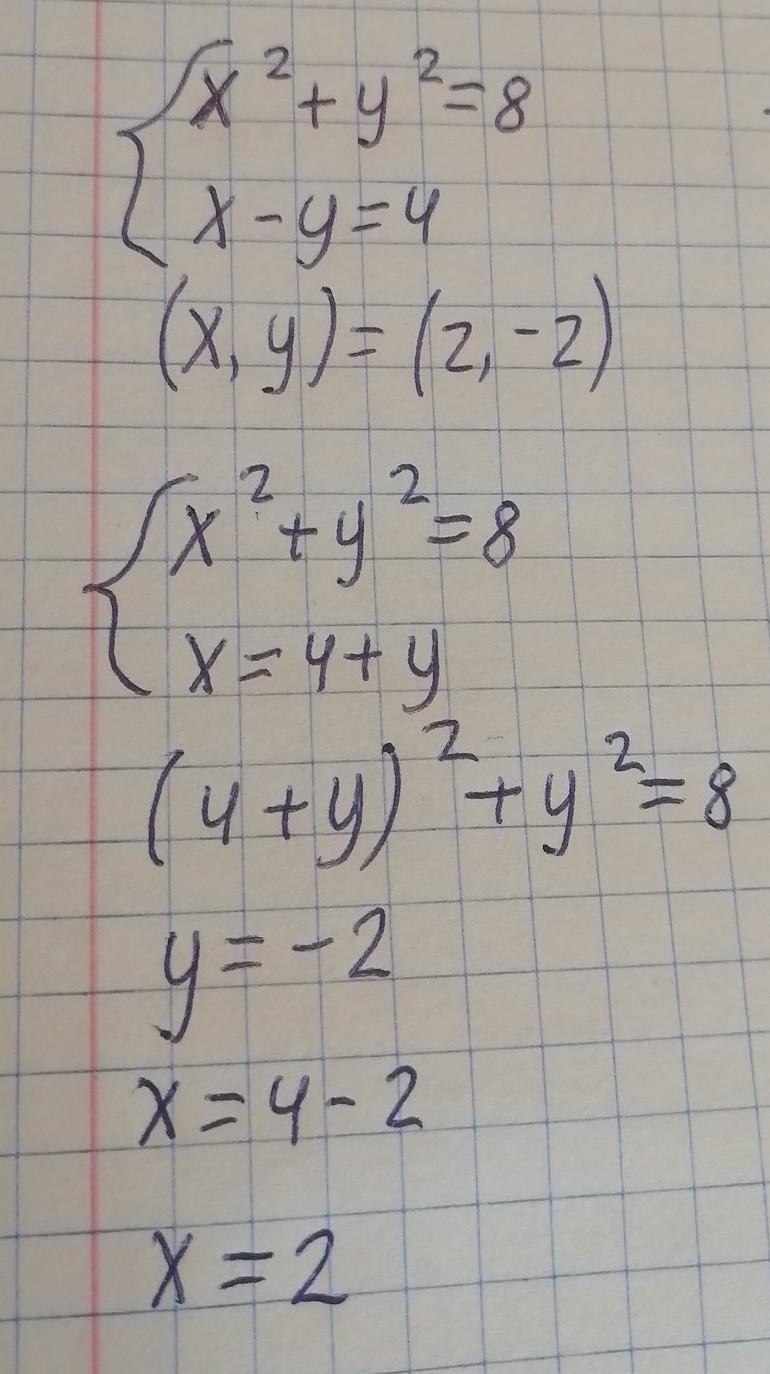 x²+y²=8
x-y=4
(x,y)=(2,-2)
x²+y²=8
x=4+y
(4+y)²+y²=8
y=-2
x=4-2
x=2